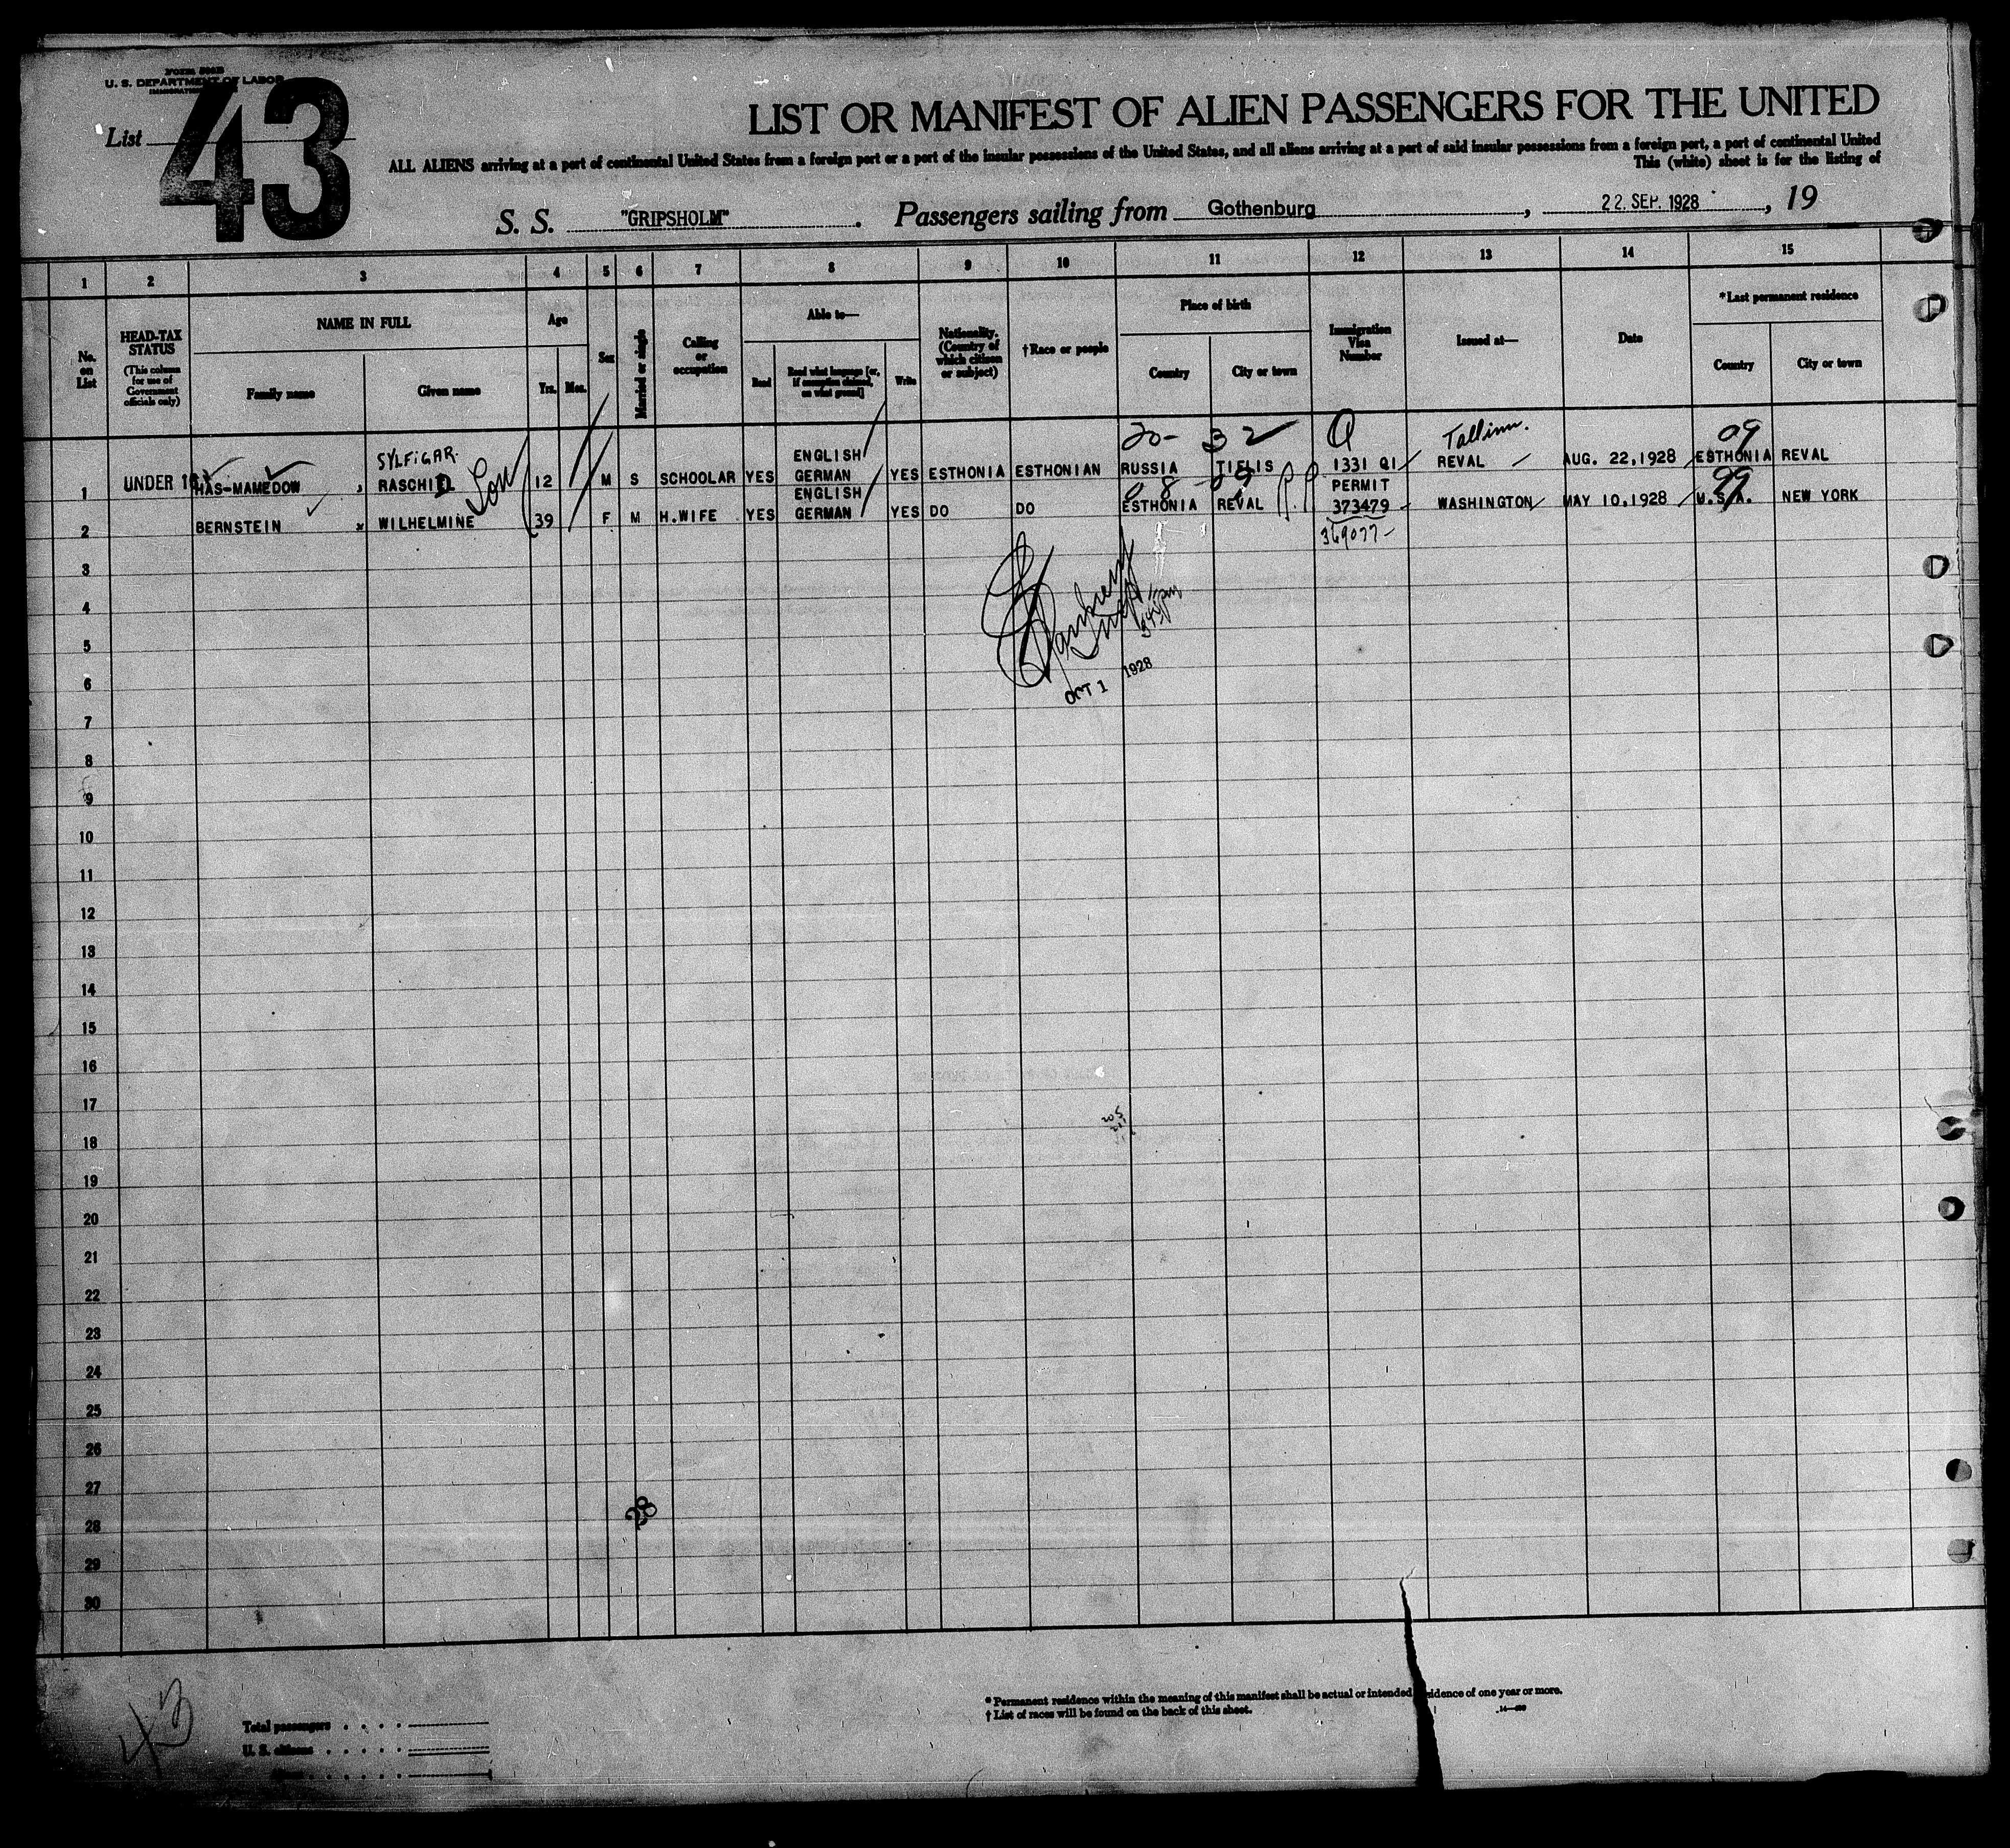 U. S. DEPARTMENT OF LABOR
List 43
LIST OR MANIFEST OF ALIEN PASSENGERS FOR THE UNITED
ALL ALIENS arriving at a port of continental United States from a foreign port or a port of the insular possessions of the United States, and all aliens arriving at a port of said insular possessions from a foreign port, a port of continental United
This (white) sheet is for the listing of
S. S. "GRIPSHOLM". Passengers sailing from Gothenburg, 22. SEP. 1928, 19
1 2 3 4 5 6 7 8 9 10 11 12 13 14 15
No. on List
HEAD-TAX STATUS
(This column for use of Government officials only)
NAME IN FULL
Family name
Given name
Age
Yrs.
Mos.
Sex
Married or single
Calling or occupation
Able to—
Read
Read what language [or, if exemption claimed, on what ground]
Write
Nationality. (Country of which citizen or subject)
†Race or people
Place of birth
Country
City or town
Immigration Visa Number
Issued at—
Date
*Last permanent residence
Country
City or town
SYLFIGAR. 20- 32 Q Tallinn. 09
1 UNDER 16 HAS-MAMEDOW, RASCHID Son 12 M S SCHOOLAR YES ENGLISH GERMAN YES ESTHONIA ESTHONIAN RUSSIA TIFLIS 1331 QI REVAL AUG. 22,1928 ESTHONIA REVAL
99
2 BERNSTEIN x WILHELMINE 39 F M H.WIFE YES ENGLISH GERMAN YES DO DO ESTHONIA REVAL PERMIT 373479 WASHINGTON MAY 10,1928 U.S.A. NEW YORK
369077-
3
4
5
6
OCT 1 1928
7
8
9
10
11
12
13
14
15
16
17
18
19
20
21
22
23
24
25
26
27
28
28
29
30
43
* Permanent residence within the meaning of this manifest shall be actual or intended residence of one year or more.
† List of races will be found on the back of this sheet.
Total passengers
U. S. citizens